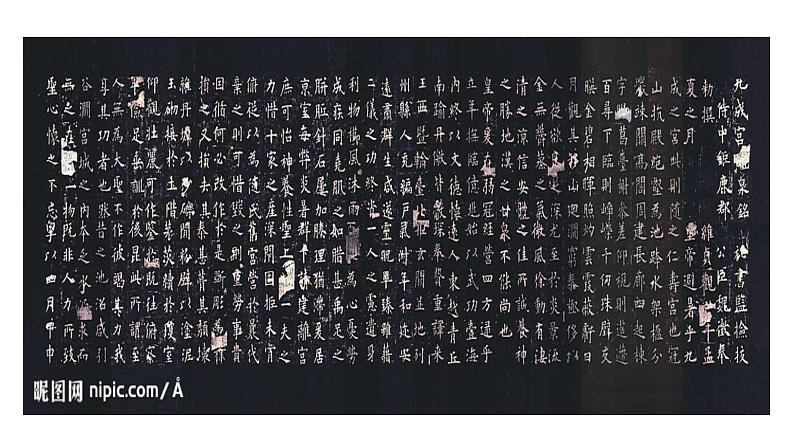 九成宮泉銘 祕書監檢校
侍中鉅鹿郡公臣魏徵奉
勅撰 維貞觀年孟
夏之月 皇帝避暑乎九
成之宮此則隨之仁壽宮也冠
山抗殿絕壑為池跨水架楹分
巖竦闕高閣周建長廊四起棟
宇葛臺榭參差仰視則迢遰
百尋下臨則崢嶸千仞珠璧交
暎金碧相暉照灼雲霞蔽虧日
月觀其移山迴澗窮泰極侈以
人從欲良足深尤至於炎景流
金無鬱蒸之氣微風徐動有淒
清之涼信安體之佳所誠養神
之勝地漢之甘泉不能尚也
皇帝爰在弱冠經營四方逮乎
立年撫臨億兆始以武功壹海
內終以文德懷遠人東越青丘
南踰丹徼皆獻琛奉贄重譯來
王西暨輪臺北拒玄闕並地列
州縣人充編戶氣淑年和邇安
遠肅群生咸遂靈貺畢臻雖藉
二儀之功終資一人之慮遺身
利物櫛風沐雨百姓為心憂勞
成疾同堯肌之如腊甚禹足之
胼胝針石屢加腠理猶滯爰居
京室每弊炎暑群下請建離宮
庶可怡神養性聖一夫之
力惜十家之產深閉固拒未肯
俯從以為隨氏舊宮營於曩代
棄之則可惜毀之則重勞事貴
因循何必改作於是斲彫為樸
損之又損去其泰甚葺其頹壞
雜丹墀以沙礫間粉壁以塗泥
玉砌接於土階茅茨續於瓊室
仰觀壯麗可作鑒於既往俯察
卑儉足垂訓於後昆此所謂至
人無為大聖不作彼竭其力我
享其功者也然昔之池沼咸引
谷澗宮城之內本乏水源求而
無之在一物既非人力所致
聖心懷之不忘粵以四月甲申
昵图网 nipic.com/Å